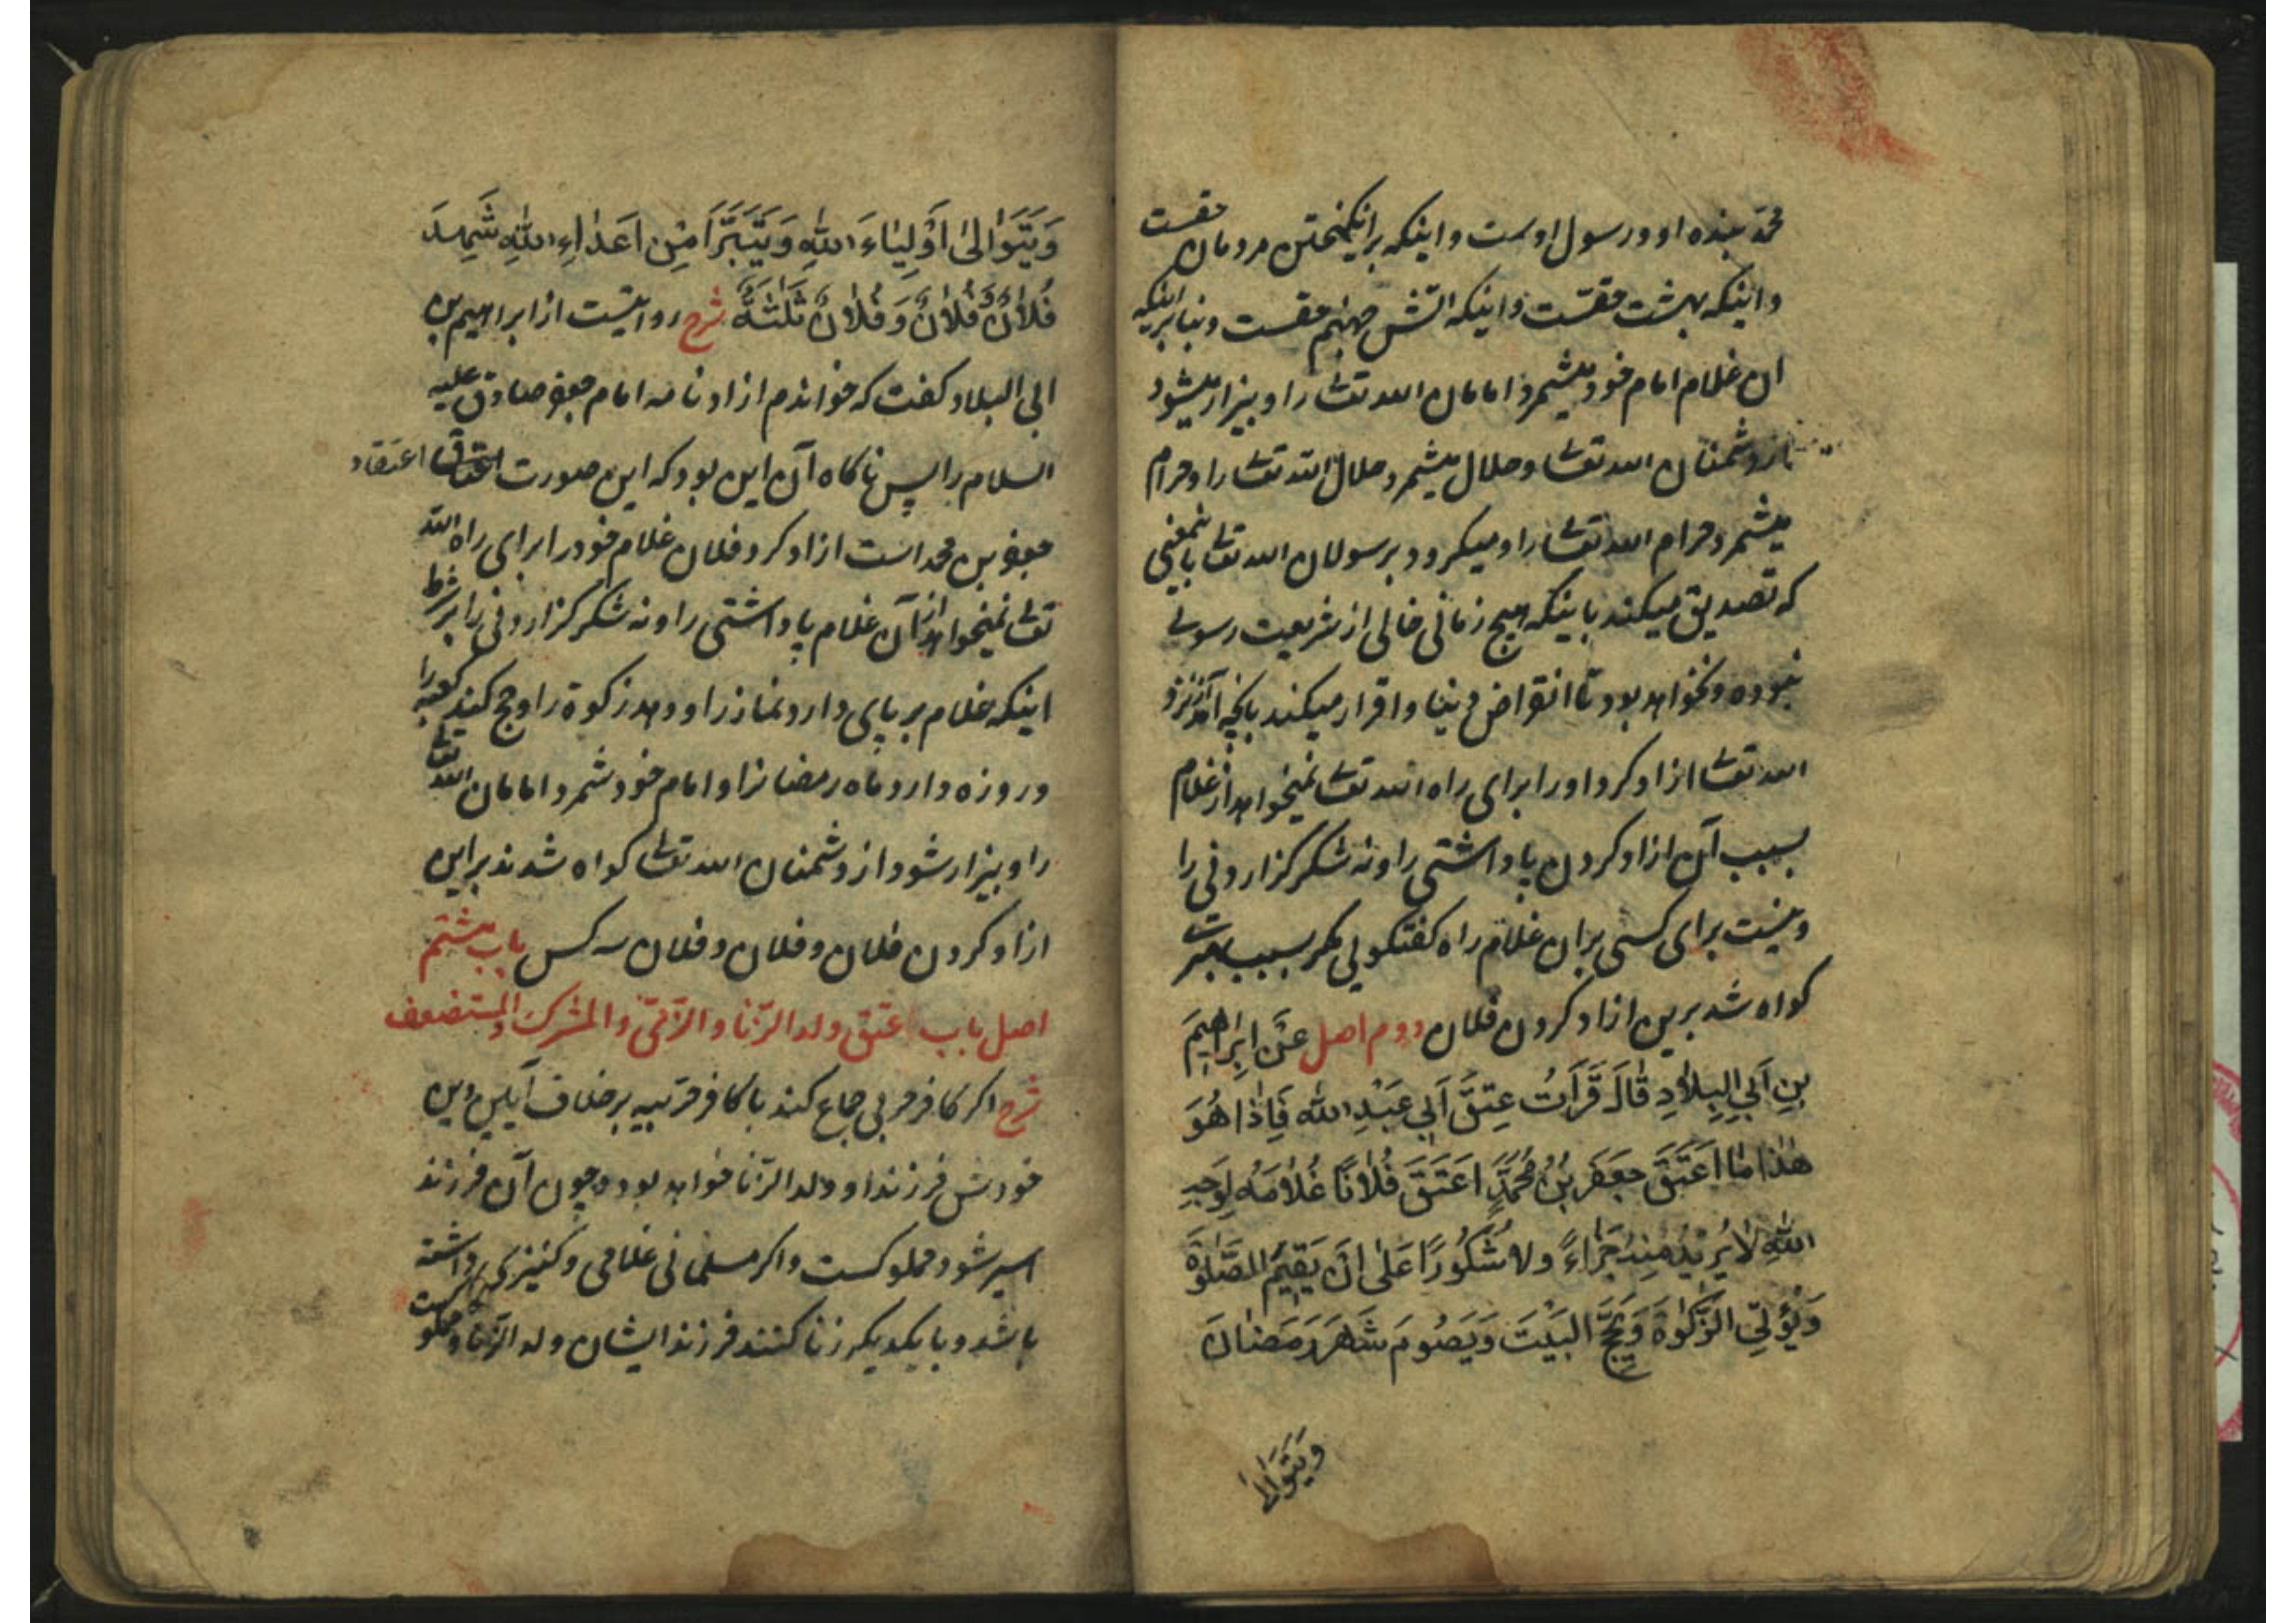 محمّد بنده او و رسول اوست و اینکه برانکیختن مردمان حقست
و اینکه بهشت حقست و اینکه آتش جهنم حقست و بنابر اینکه
ان غلام امام خود میشمرد امامان الله تعالی را و بیزار میشود
از دشمنان الله تعالی و حلال میشمرد حلال الله تعالی را و حرام
میشمرد حرام الله تعالی را و میکرود برسولان الله تعالی باینمعنی
که تصدیق میکند باینکه هیچ زمانی خالی از شریعت رسولی
نبوده و نخواهد بود تا انقراض دنیا و اقرار میکند بانچه آمد از نزد
الله تعالی ازاد کرد او را برای راه الله تعالی نمیخواهد از غلام
بسبب آن ازاد کردن پاداشتی را و نه شکرکزاردنی را
و نیست برای کسی بران غلام راه کفتکویی مکر بسبب
کواه شد برین ازاد کردن فلان دوم اصل عَنْ اِبراهیمَ
بنِ اَبِی البِلادِ قالَ قَرَأتُ عِتقَ اَبی عَبْدِ الله فَاِذا هُوَ
هٰذا ما اَعتَقَ جَعفَر بْنُ مُحَمَّدٍ اَعتَقَ فُلانًا غُلامَهُ لِوَجهِ
اللهِ لا یُریدُ مِنهُ جَزاءً ولا شُکُورًا عَلٰی اَنْ یُقیمَ الصَّلوٰةَ
وَیُؤتِیَ الزَّکوٰةَ وَیَحُجَّ البَیْتَ وَیَصُومَ شَهرَ رَمَضانَ
ویَتَوالیٰ
وَیَتَوَالیٰ اَوْلِیاءَ اللهِ وَیَتَبَرَّأَ مِنْ اَعداءِ اللهِ شَهِدَ
فُلانٌ وَفُلانٌ وَفُلانٌ ثَلٰثَةٌ شرح روایتست از ابراهیم بن
ابی البلاد کفت که خواندم ازادنامه امام جعفر صادق علیه
السلام را پس ناکاه آن این بود که این صورت اعتاق اعتقاد
جعفر بن محمد است ازاد کرد فلان غلام خود را برای راه الله
تعالی نمیخواهد از آن غلام پاداشتی را و نه شکرکزاردنی را بر شرط
اینکه غلام بر پای دارد نماز را و دهد زکوة را و حج کند کعبه را
و روزه دارد ماه رمضانرا و امام خود شمرد امامان الله تعالی
را و بیزار شود از دشمنان الله تعالی کواه شدند بر این
ازاد کردن فلان و فلان و فلان سه کس باب هشتم
اصل باب عتق ولد الزّنا والذّمّیّ والمشرک والمستضعف
شرح اکر کافر حربی جماع کند با کافر حربیه بر خلاف آیین دین
خودش فرزند او ولد الزّنا خواهد بود و چون آن فرزند
اسیر شود مملوکست و اکر مسلمانی غلامی و کنیزکی داشته
باشد و با یکدیکر زنا کنند فرزند ایشان ولد الزّنا و مملوکست